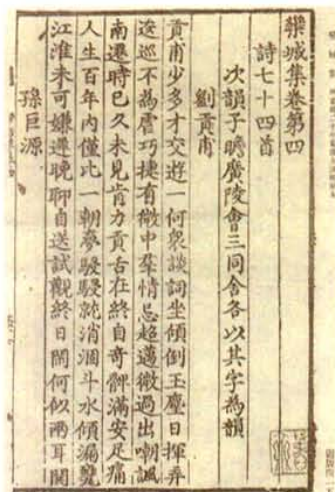 欒城集卷第四
詩七十四首
次韻子瞻廣陵會三同舍各以其字為韻
劉貢甫
貢甫少多才交遊一何衆談詞坐傾倒玉麈日揮弄
逡巡不為虐巧捷有微中羣情忌超邁微過出嘲諷
南遷時已久未見肯力貢舌在終自奇髀滿安足痛
人生百年內僅比一朝夢駸駸就消涸斗水傾漏甕
江淮未可嫌遲晚聊自送試觀終日閙何似兩耳閧
孫巨源